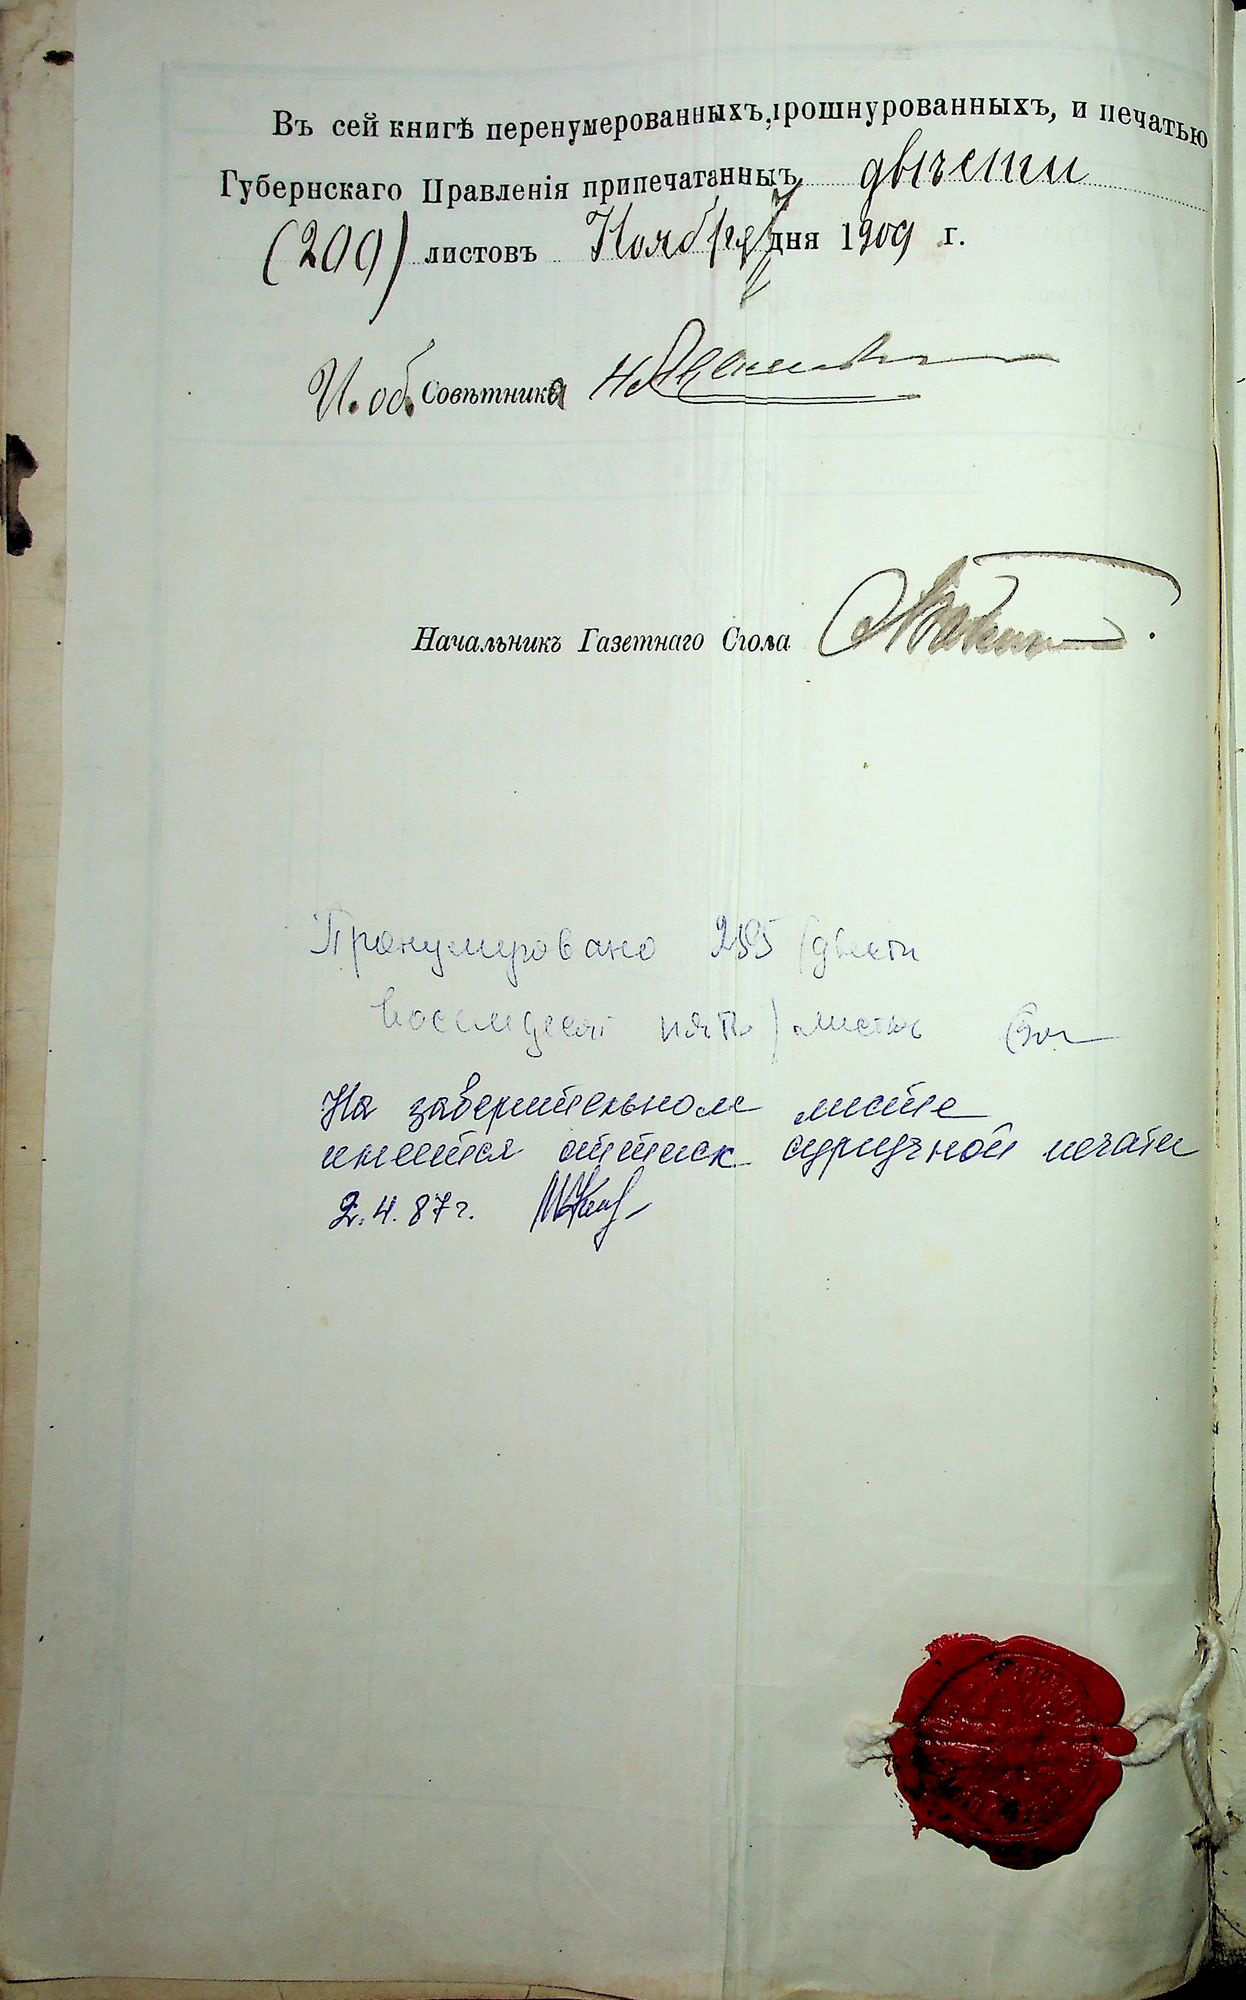 Въ сей книгѣ перенумерованныхъ, прошнурованныхъ, и печатью
Губернскаго Правленія припечатанныхъ двѣсти
(200) листовъ Ноября 7 дня 1909 г.
И. об. Совѣтника
Начальникъ Газетнаго Стола
Пронумеровано 285 (двести
восемдесят пять) листов
На заверительном листе
имеется оттиск сургучной печати
2.4.87г.